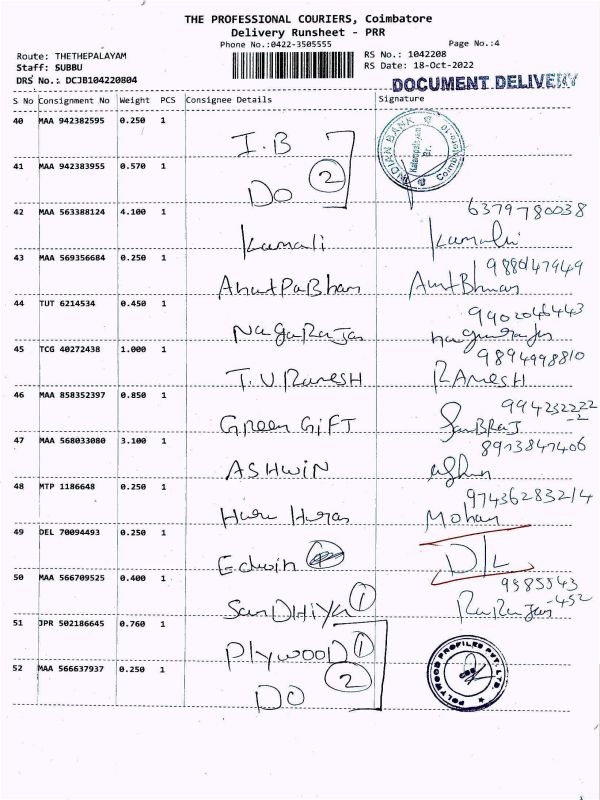 THE PROFESSIONAL COURIERS, Coimbatore
Delivery Runsheet - PRR
Phone No.:0422-3505555
Page No.:4
Route: THETHEPALAYAM
RS No.: 1042208
Staff: SUBBU
RS Date: 18-Oct-2022
DRS No.: DCJB104220804
DOCUMENT DELIVERY
S No Consignment No Weight PCS Consignee Details Signature
40 MAA 942382595 0.250 1
I.B
INDIAN BANK
Br.
41 MAA 942383955 0.570 1
DO 2
42 MAA 563388124 4.100 1
6379780038
Kamali Kamali
43 MAA 569356684 0.250 1
44 TUT 6214534 0.450 1
9902046443
NagaRajan
45 TCG 40272438 1.000 1
9894998810
T.V.RamesH RAmesH
46 MAA 858352397 0.850 1
994232222
-2
Green GiFT
47 MAA 568033080 3.100 1
8913847406
ASHWiN
48 MTP 1186648 0.250 1
9743628321/4
Mohan
49 DEL 70094493 0.250 1
Edwin D/L
50 MAA 566709525 0.400 1
9385543
-452
SanDHiYa 1
51 JPR 502186645 0.760 1
PlywooD 1
POLYWOOD PROFILES PVT. LTD.
52 MAA 566637937 0.250 1
DO 2